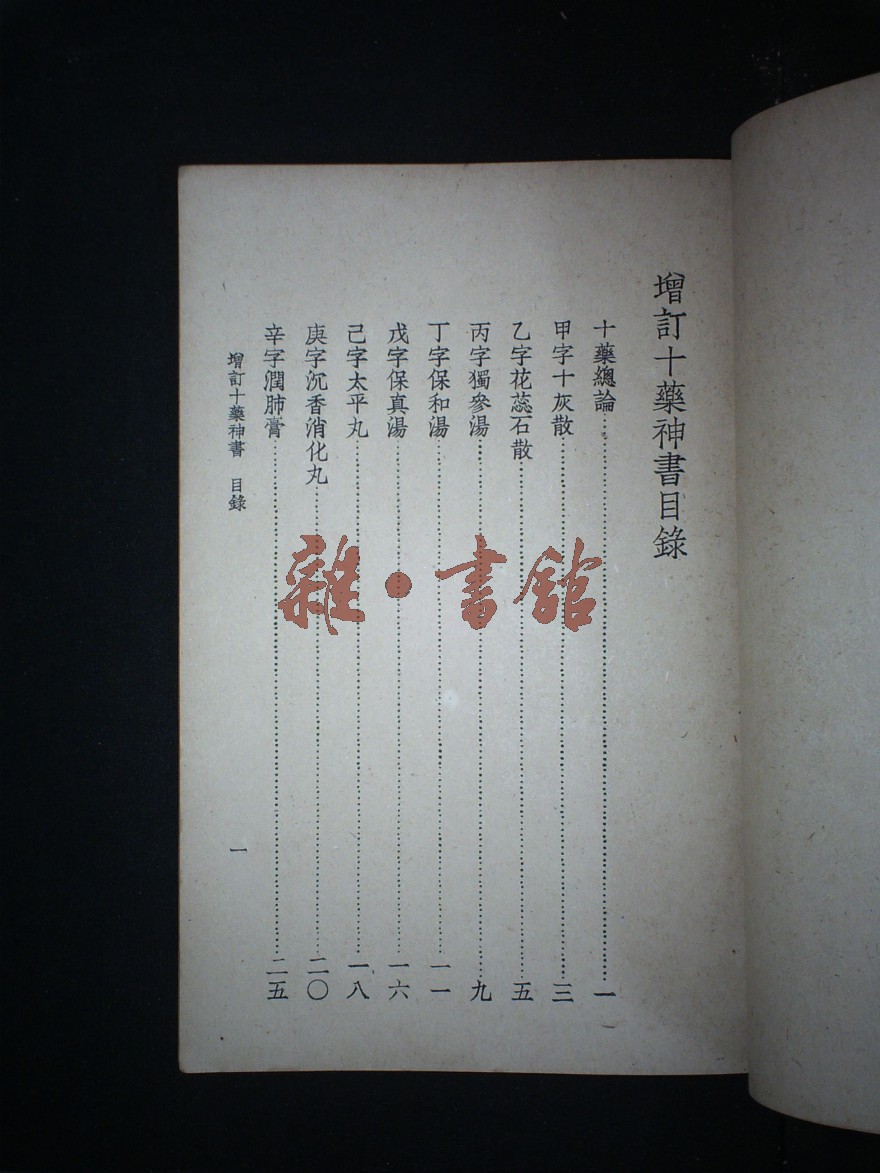 增訂十藥神書目錄
十藥總論……一
甲字十灰散……三
乙字花蕊石散……五
丙字獨參湯……九
丁字保和湯……一一
戊字保真湯……一六
己字太平丸……一八
庚字沉香消化丸……二〇
辛字潤肺膏……二五
增訂十藥神書 目錄
一
雜·書館